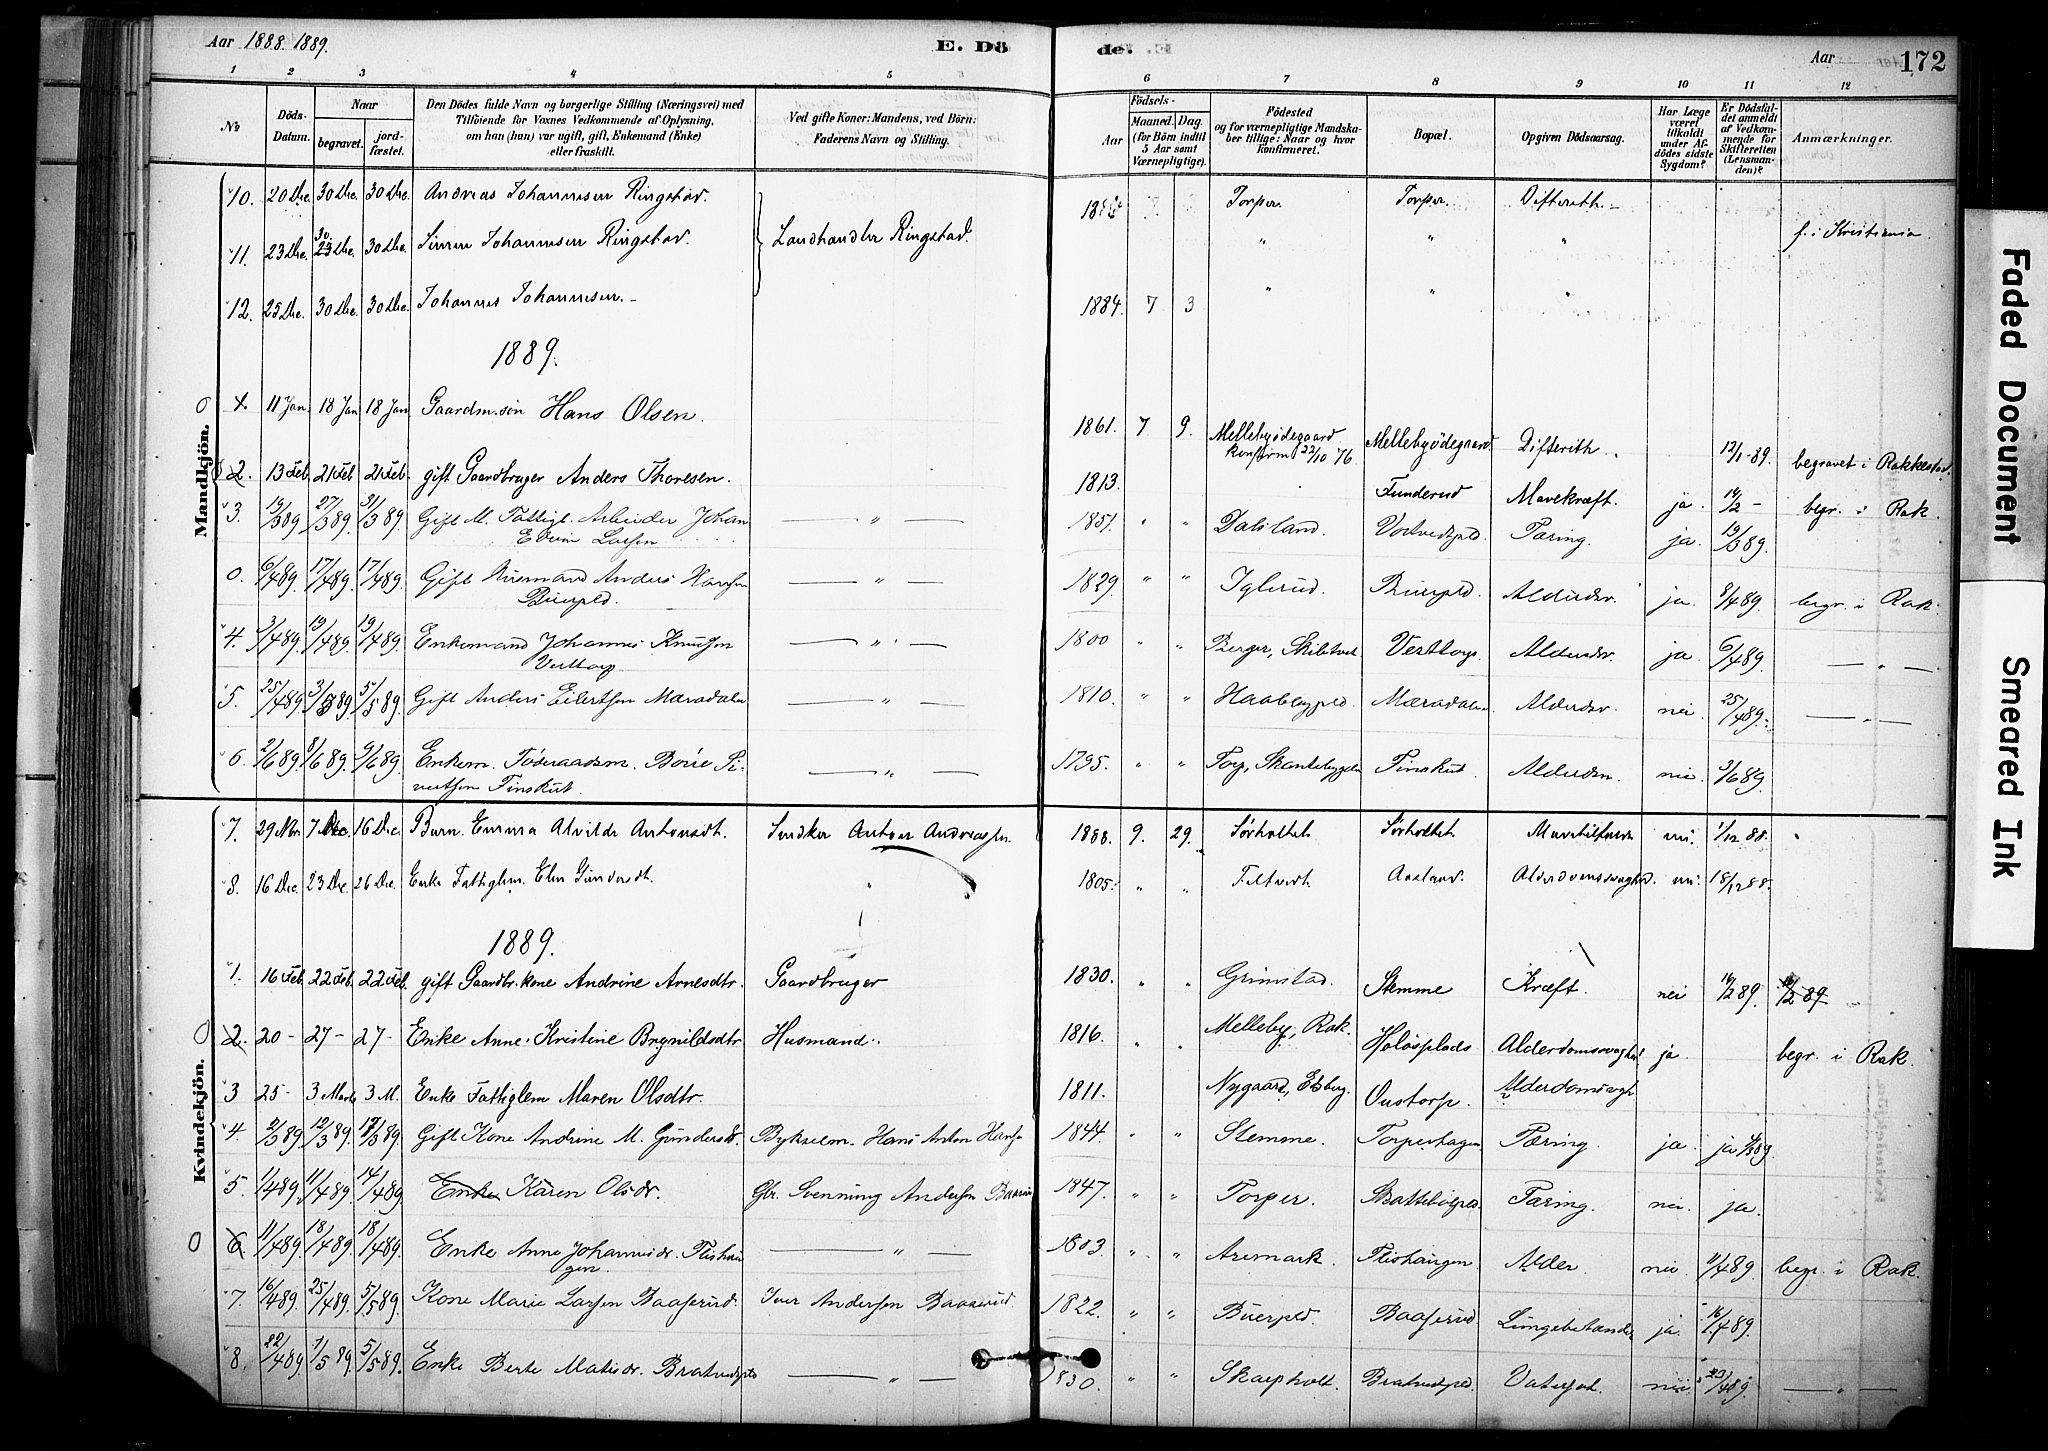 Aar 1888. 1889.
E. Dö
de.
Aar
172
1 2 3 4 5 6 7 8 9 10 11 12
No
Döds-Datum.
Naar
begravet.
jordfæstet.
Den Dödes fulde Navn og borgerlige Stilling (Næringsvei) med
Tilföiende for Voxnes Vedkommende af Oplysning,
om han (hun) var ugift, gift, Enkemand (Enke)
eller fraskilt.
Ved gifte Koner: Mandens, ved Börn:
Faderens Navn og Stilling.
Födsels-
Aar
Maaned. Dag.
(for Börn indtil
5 Aar samt
Værnepligtige).
Födested
og for værnepligtige Mandska-
ber tillige: Naar og hvor
konfirmeret.
Bopæl.
Opgiven Dödsaarsag.
Har Læge
været
tilkaldt
under Af-
dödes sidste
Sygdom?
Er Dödsfal-
det anmeldt
af Vedkom-
mende for
Skifteretten
(Lensman-
den)?
Anmærkninger.
Mandkjön.
10. 20 Dec. 30 Dec. 30 Dec. Andreas Johannesen Ringstad. Torper. Torper. Difterith.
11. 23 Dec. 30 Dec. 30 Dec. Simen Johannesen Ringstad. Landhandler Ringstad. " " " f. i Kristiania.
12. 25 Dec. 30 Dec. 30 Dec. Johannes Johannesen. 1884. 7 3 " " "
1889.
11 Jan. 18 Jan 18 Jan Gaardm.søn Hans Olsen. 1861. 7 9. Mellebyødegaard konfirm 22/10 76 Mellebyødegaard. Difterith. 12/1-89. begravet i Rakkestad.
2. 13 Feb 21 Feb 21 Feb. gift Gaardbruger Anders Thoresen. 1813. Funderud Mavekræft. ja. 14/2 - begr. i Rak.
3. 19/3 89 27/3 89. 31/3 89. Gift M. Fattigl. Arbeider Johan
Edvin Larsen — " — 1851. " " Dalsland. Tæring. ja. 19/3 89.
0. 6/4 89. 17/4 89. 17/4 89. Gift Husmand Anders Hansen
Buerpld. — " — 1829. " " Iglerud. Buerpld. Aldersv. ja. 8/4 89. begr. i Rak.
4. 3/4 89. 19/4 89. 19/4 89. Enkemand Johannes Knudsen
Vesttorp — " — 1800 " " Berger, Skibtvet Vesttorp. Aldersv. ja. 6/4 89. — " —
5. 25/4 89 3/5 89 5/5 89. Gift Anders Eilertsen Mæradalen — " — 1810. " " Haabypld. Mæradalen. Aldersv. nei. 25/4 89. — " —
6. 2/6 89. 8/6 89. 9/6 89. Enkem. Föderaadsm. Börre Si-
vertsen Finskut. — " — 1795. " " Torp, Finskut. nei. 3/6 89.
Kvindekjön.
7. 29 Nbr. 7 Dec. 16 Dec. Barn Emma Alvilde Antonsdt. Anton Andreassen. 1888. 9. 29. Sørholtet. Sørholtet. nei. 1/12 88.
8. 16 Dec. 23 Dec 26 Dec. Enke Fattiglem. Elen Gundersdt. " 1805. " " Feltvedt. Aaslund. Alderdomssvaghed. nei. 18/12 88.
1889.
1. 16 Feb. 22 Feb. 22 Feb. gift Gaardbr.kone Andrine Arnesdtr. Gaardbruger 1830. " " Grimstad. Stemme Kræft. nei 16/2 89.
2. 20 - 27 - 27 - Enke Anne Kristine Brynildsdtr. Husmand. 1816. " " Melleby, Rak. Holøsplads Alderdomssvaghed ja. begr. i Rak.
3 25 - 3 Marts 3 M. Enke Fattiglem Maren Olsdtr. 1811. Nygaard, Eidsberg. Oustorp. Alderdomsvagh
4. 2/3 89. 12/3 89. 17/3 89. Gift Kone Andrine M. Gundersdt. Bykselm. Hans Anton Hansen 1844. " " Stemme. Torperhagen Tæring. ja ja 4/3 89.
5. 1/4 89. 11/4 89. 14/4 89. Enke Karen Olsdr. Gbr. Svenning Andersen Baaserud 1847. " " Torper. Tæring. nei. ja.
6. 11/4 89. 18/4 89. 18/4 89. Enke Anne Johannesdr. Flishau-
gen — " — 1803. " " Aremark. Flishaugen. Alder. nei. 11/4 89. begr. i Rak.
7. 16/4 89. 25/4 89. 5/5 89. Kone Marie Larsen Baaserud. Iver Andersen Baaserud. 1822. " " Buerpld. Baaserud Lungebetændelse ja. 16/4 89.
8. 22/4 89. 1/5 89. 5/5 89. Enke Berte Matisdr. Bratvedpld — " — 1830. " " Skarpholt. Bratvedpld. Vatersot. nei — " —
Faded Document
Smeared Ink